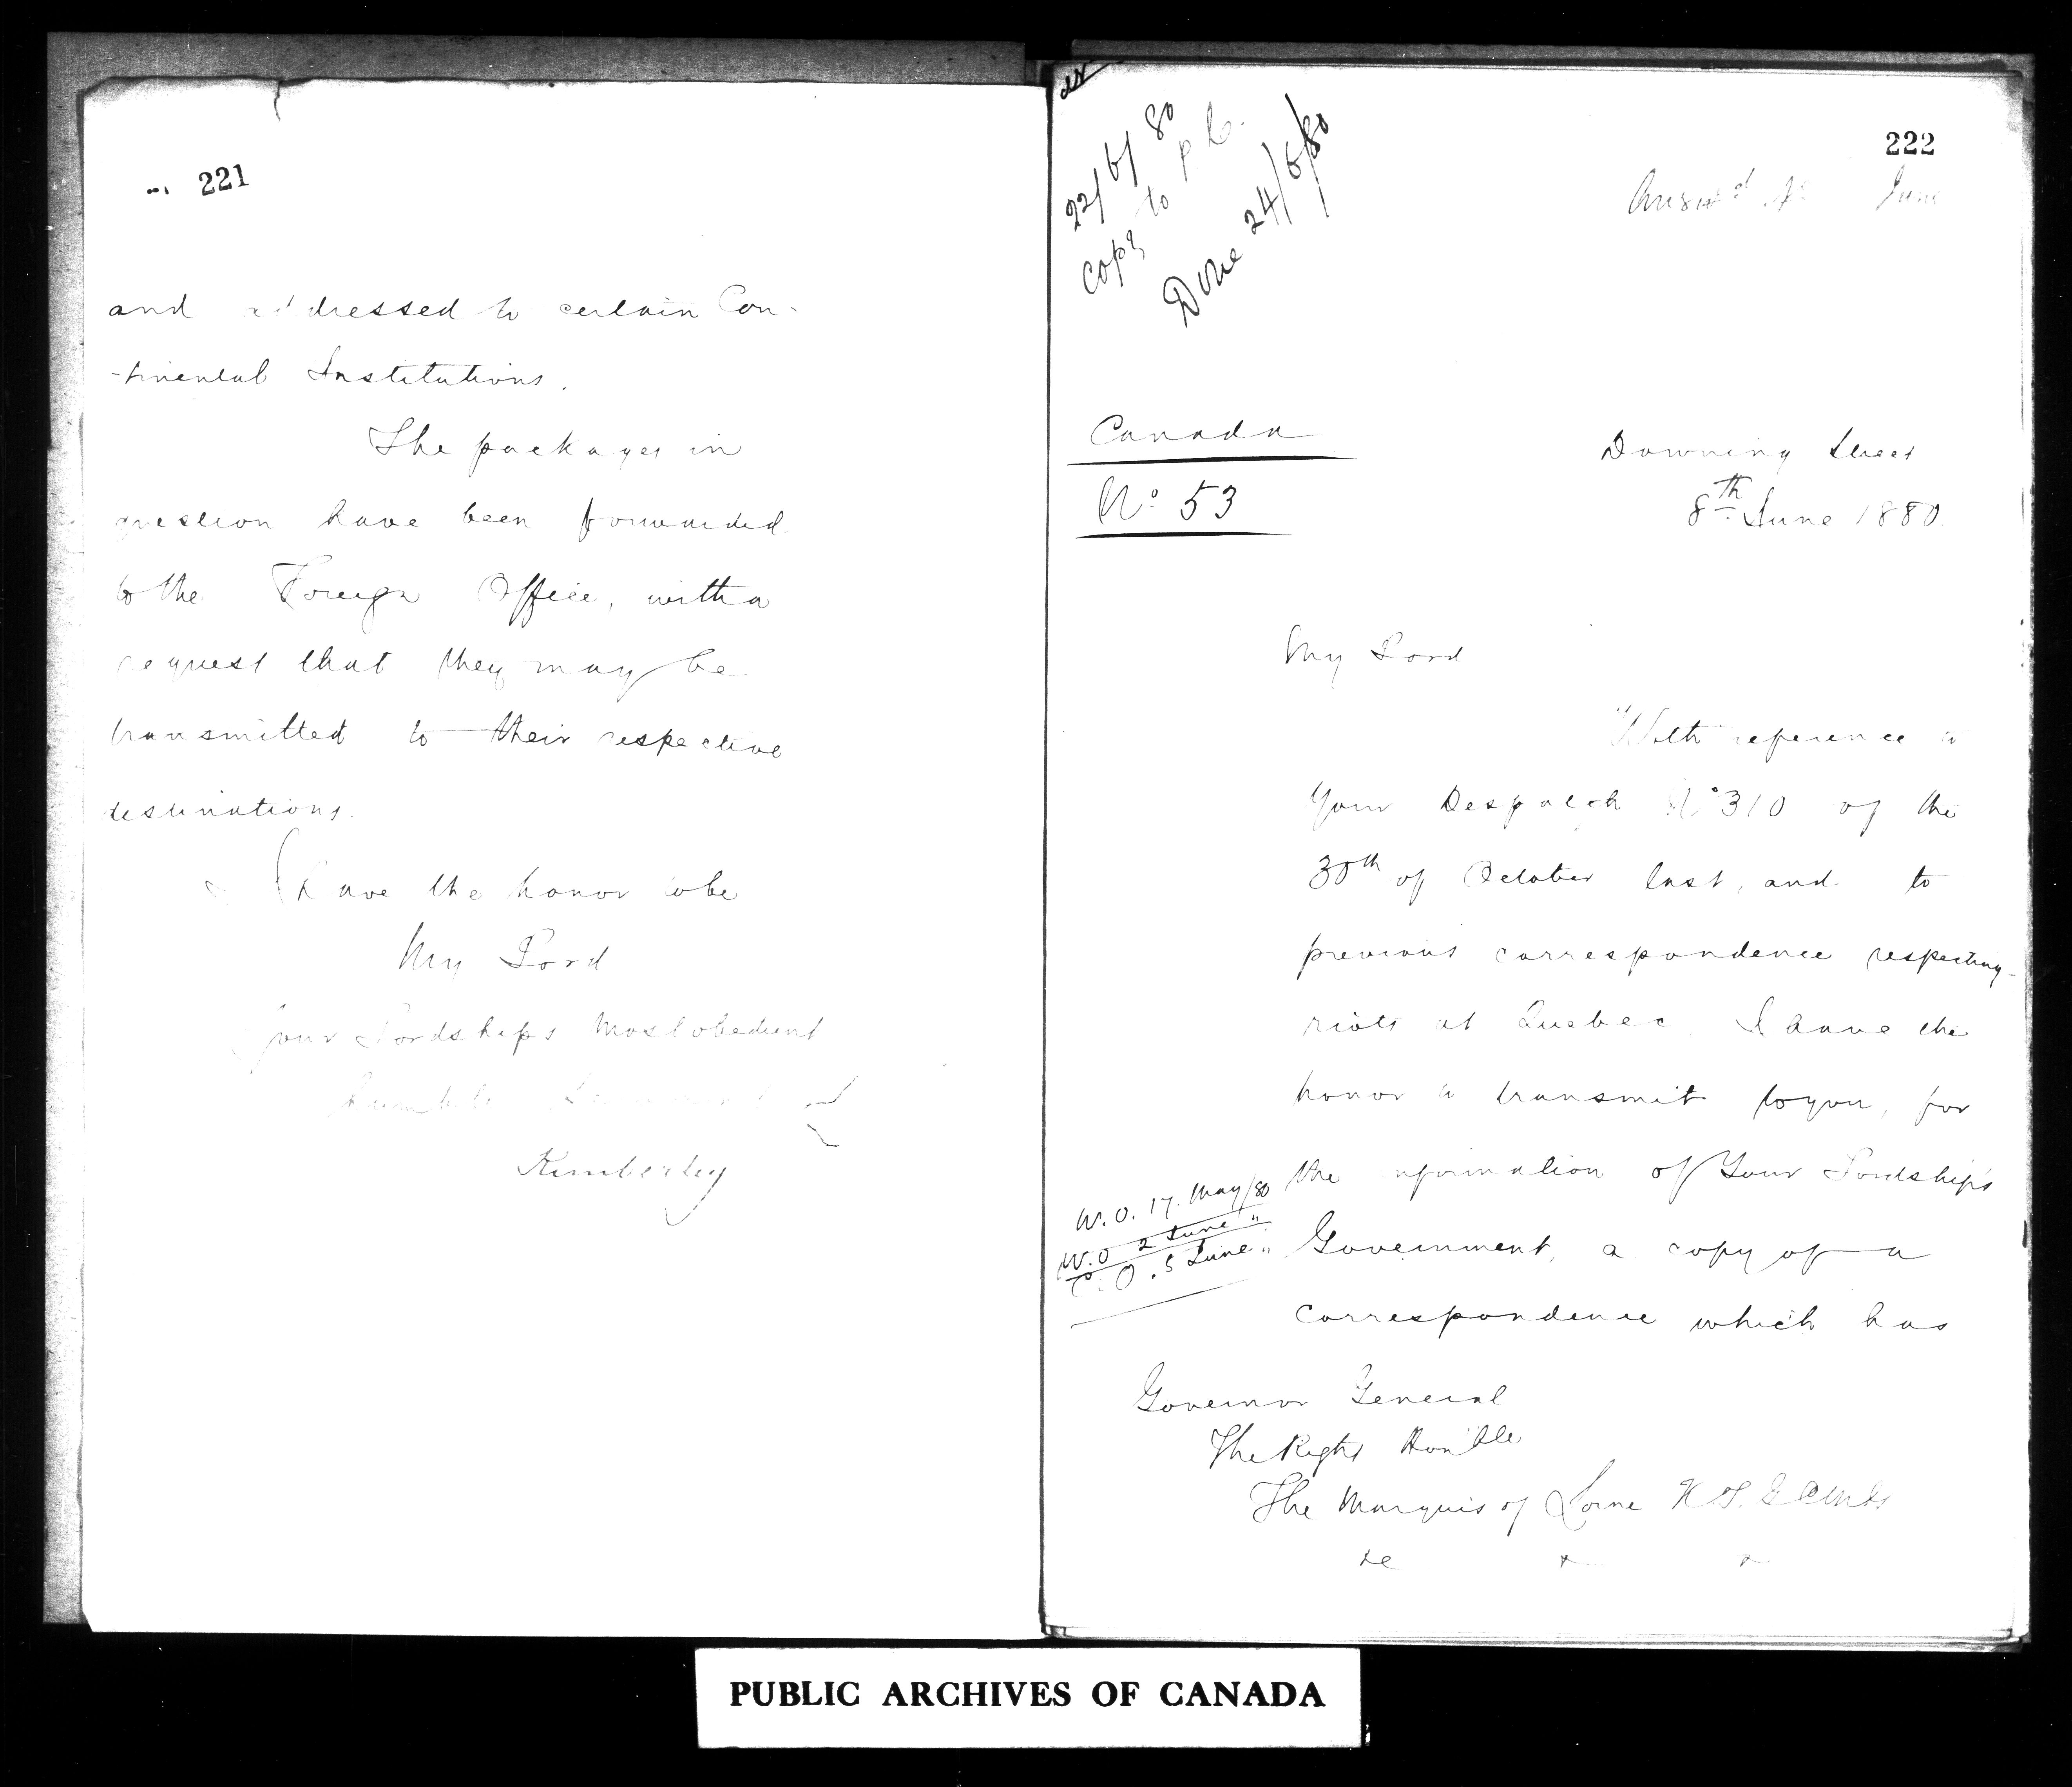 221
and addressed to certain Con-
-tinental Institutions.
The packages in
question have been forwarded
to the Foreign Office, with a
request that they may be
transmitted to their respective
destinations.
I have the honor to be
My Lord
Your Lordships most obedient
humble Servant
Kimberley
222
22/6/80
Copy to P.C.
Done 24/6/80
Answd June
Canada
No 53
Downing Street
8th June 1880.
My Lord
With reference to
Your Despatch No 310 of the
30th of October last, and to
previous correspondence respecting
riots at Quebec, I have the
honor to transmit to you, for
the information of Your Lordship's
Government, a copy of a
correspondence which has
W.O. 17. May/80
W.O 2 June "
C.O. 5 June "
Governor General
The Right Honble
The Marquis of Lorne K.T. GCMG
&c & &
PUBLIC ARCHIVES OF CANADA